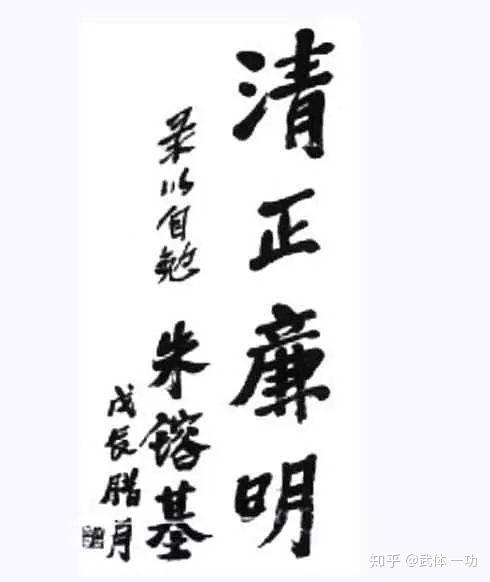 清正廉明
录以自勉
朱镕基
戊辰腊月
知乎 @武体一功